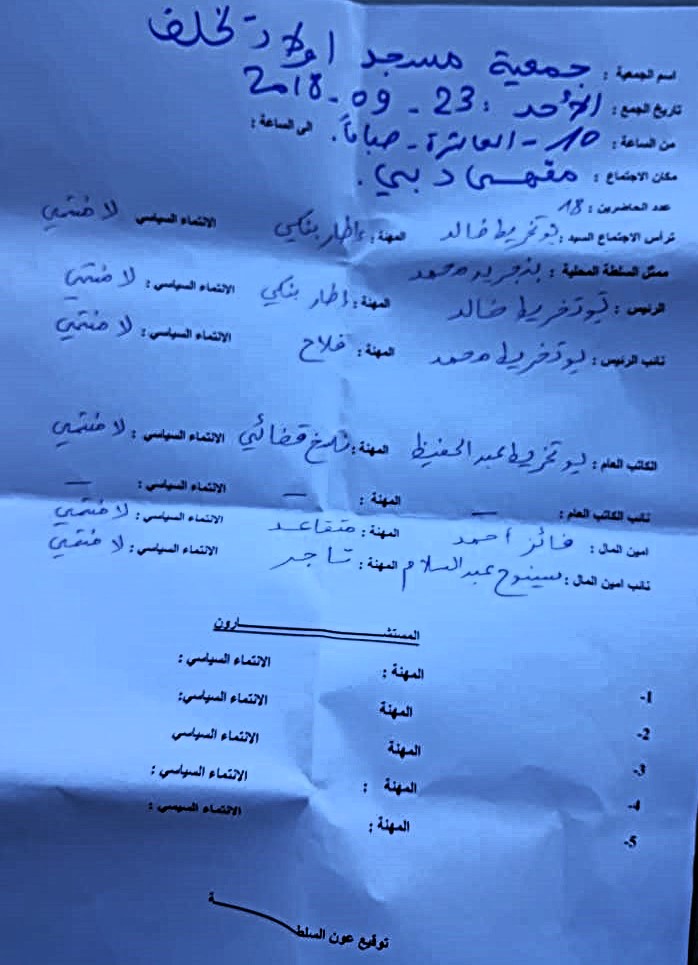 اسم الجمعية : جمعية مسجد اولاد تخلف
تاريخ الجمع : الأحد : 23 - 09 - 2018
من الساعة : 10 - العاشرة - صباحاً . الى الساعة :
مكان الاجتماع : مقهى دبي .
عدد الحاضرين : 18
ترأس الاجتماع السيد : خالد المهنة : إطار بنكي الانتماء السياسي لا منتمي
ممثل السلطة المحلية : محمد
الرئيس : خالد المهنة : إطار بنكي الانتماء السياسي : لا منتمي
نائب الرئيس : محمد المهنة : فلاح الانتماء السياسي : لا منتمي
الكاتب العام : عبد الحفيظ المهنة : قضائي الانتماء السياسي : لا منتمي
نائب الكاتب العام : — المهنة : — الانتماء السياسي : —
امين المال : فائز أحمد المهنة : متقاعد الانتماء السياسي : لا منتمي
نائب امين المال : عبد السلام المهنة : تاجر الانتماء السياسي : لا منتمي
المستشارون
1- المهنة : الانتماء السياسي :
2- المهنة الانتماء السياسي:
3- المهنة الانتماء السياسي
4- المهنة : الانتماء السياسي :
5- المهنة : الانتماء السيسي :
توقيع عون السلطة